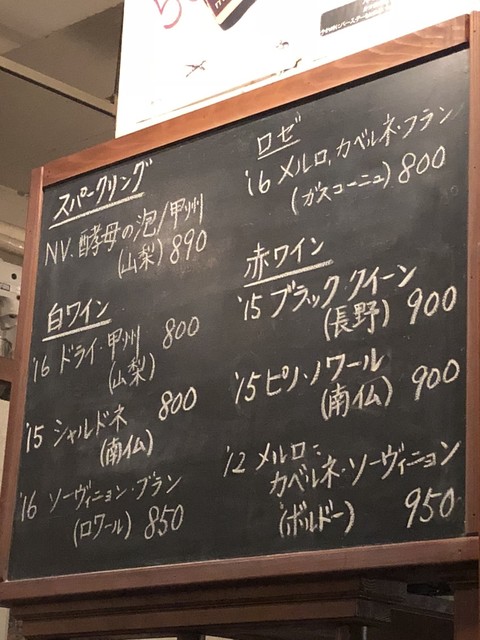 スパークリング
NV. 酵母の泡/甲州
(山梨) 890
白ワイン
'16 ドライ・甲州 800
(山梨)
'15 シャルドネ 800
(南仏)
'16 ソーヴィニョン・ブラン
(ロワール) 850
ロゼ
'16 メルロ, カベルネ・フラン
(ガスコーニュ) 800
赤ワイン
'15 ブラック・クイーン
(長野) 900
'15 ピノ・ノワール 900
(南仏)
'12 メルロ・
カベルネ・ソーヴィニョン
(ボルドー) 950